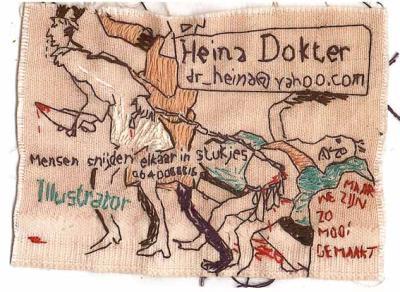 DN
Heina Dokter
dr_heina@yahoo.com
Mensen snijden elkaar in stukjes
Illustrator
MAAR
WE ZIJN
ZO
MOOI
GEMAAKT